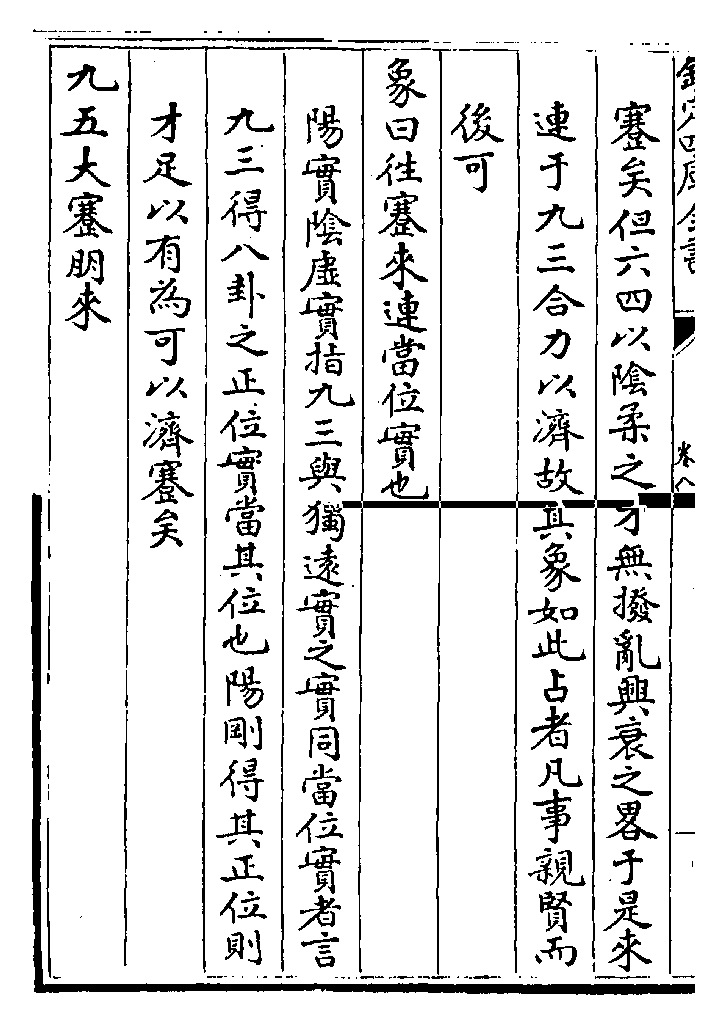 欽定四庫全書
卷八
蹇矣但六四以陰柔之才無撥亂興衰之畧于是來
連于九三合力以濟故其象如此占者凡事親賢而
後可
象曰往蹇來連當位實也
陽實陰虛實指九三與獨遠實之實同當位實者言
九三得八卦之正位實當其位也陽剛得其正位則
才足以有為可以濟蹇矣
九五大蹇朋來